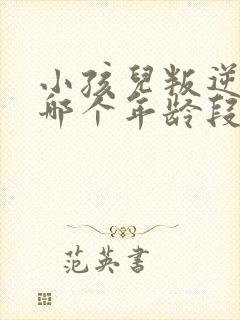 小孩兒叛逆
哪个年龄段
范英書